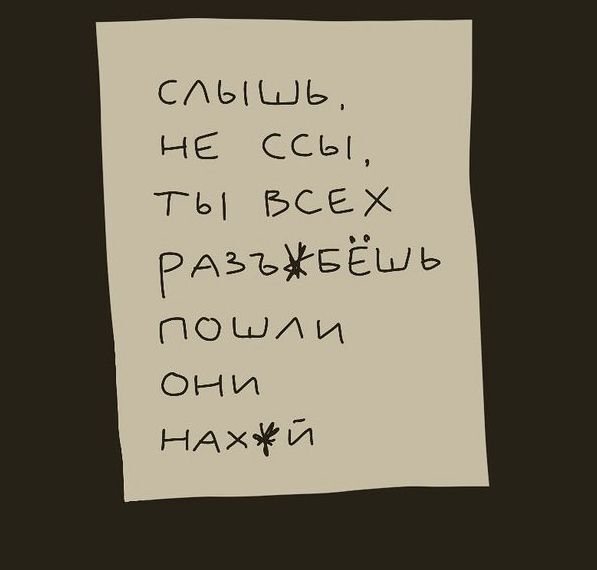 СЛЫШЬ,
НЕ ССЫ,
ТЫ ВСЕХ
РАЗЪ*БЁШЬ
ПОШЛИ
ОНИ
НАХ*Й